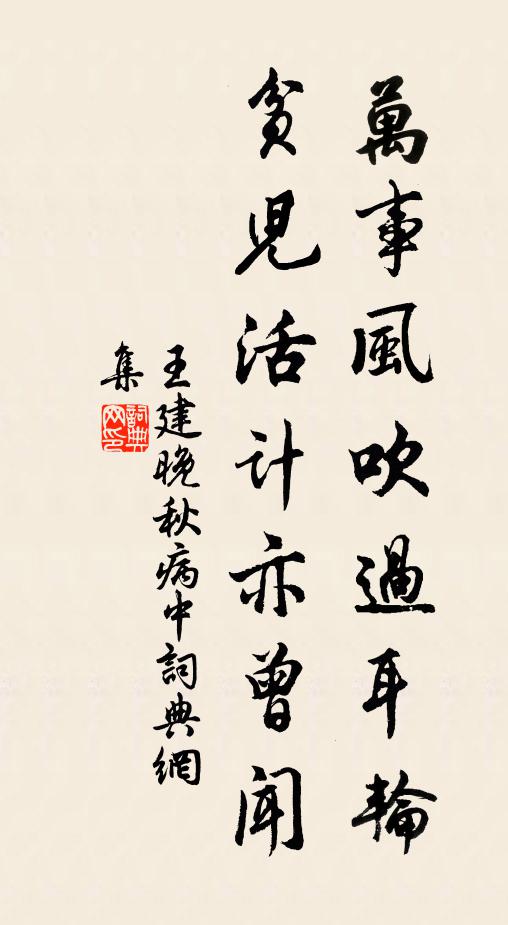 萬事風吹過耳輪
貧児活计亦曾聞
王建晚秋病中詞典網
集
詞典
网印